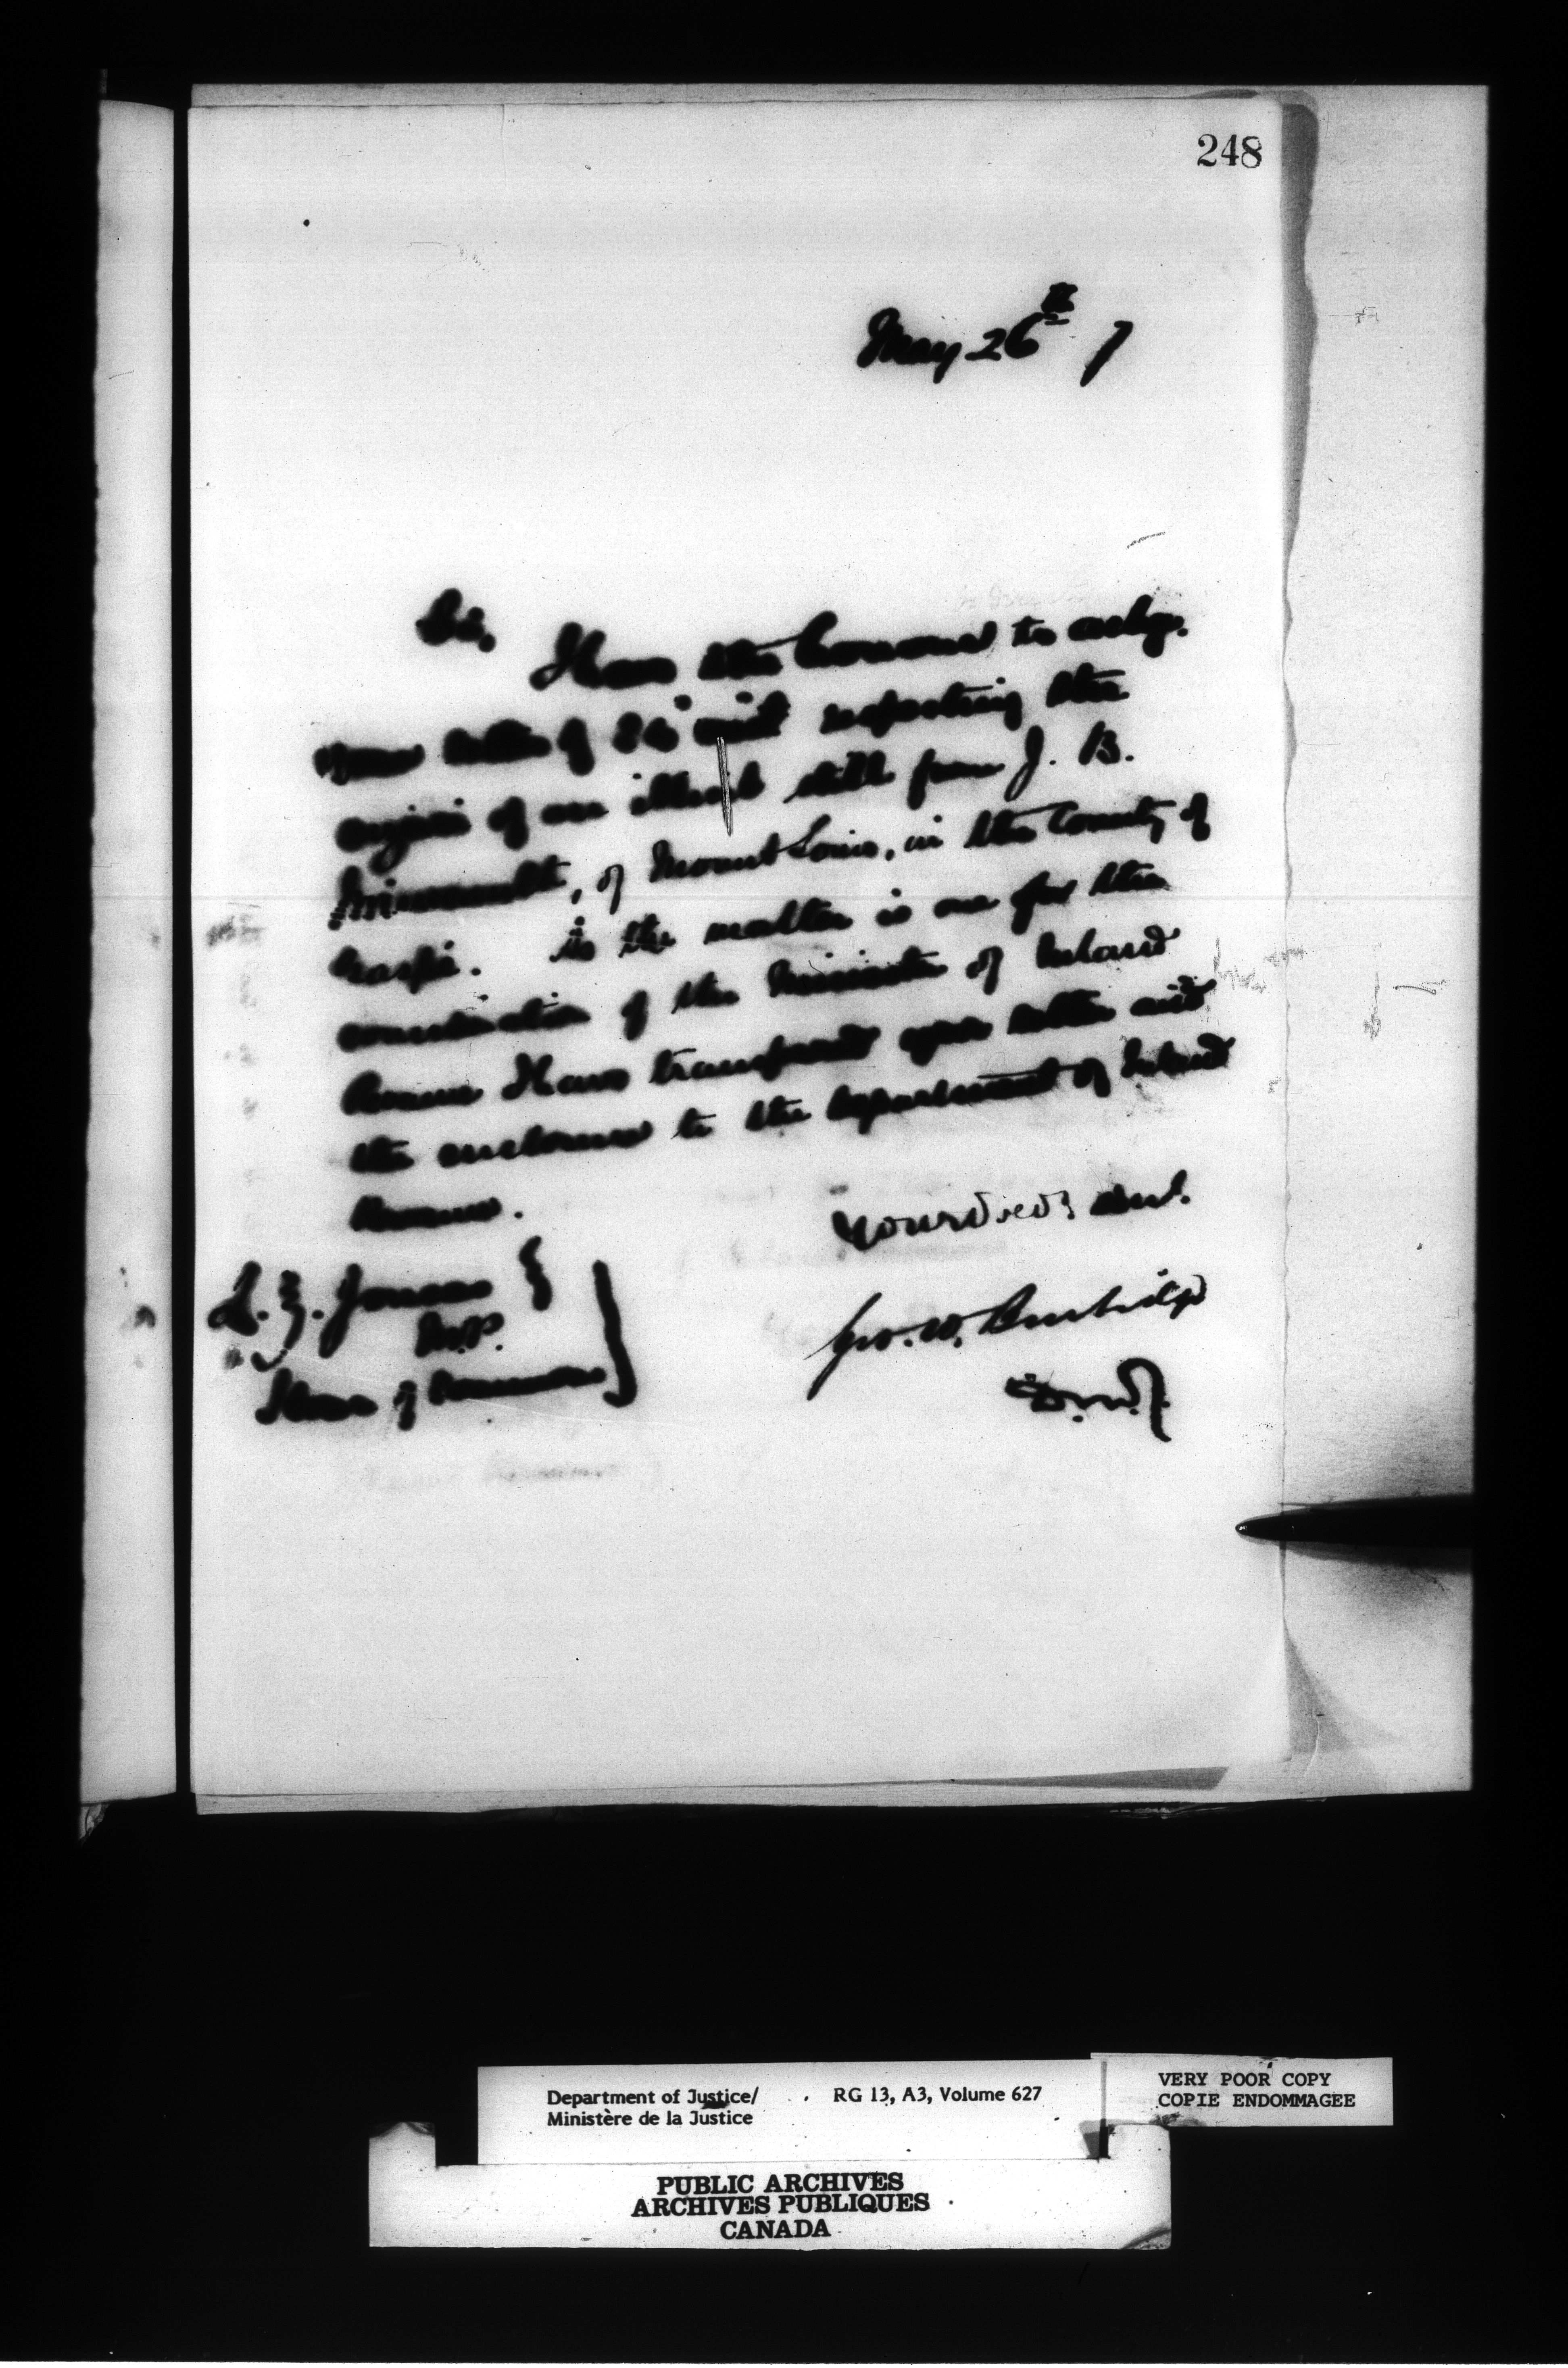 248
May 26th 7
Sir,
I have the honour to ackge.
your letter of respecting the
of an illicit still from J. B.
of Mount Louis, in the County of
Gaspé. As the matter is one for the
consideration of the Minister of Inland
Revenue I have transferred your letter and
the enclosures to the department of Inland
Revenue.
Your obedt. Svt.
Geo. W. Burbidge
D.M.J.
L. Z. Joncas
M.P.
House of Commons
Department of Justice/
Ministère de la Justice
RG 13, A3, Volume 627
VERY POOR COPY
COPIE ENDOMMAGEE
PUBLIC ARCHIVES
ARCHIVES PUBLIQUES
CANADA